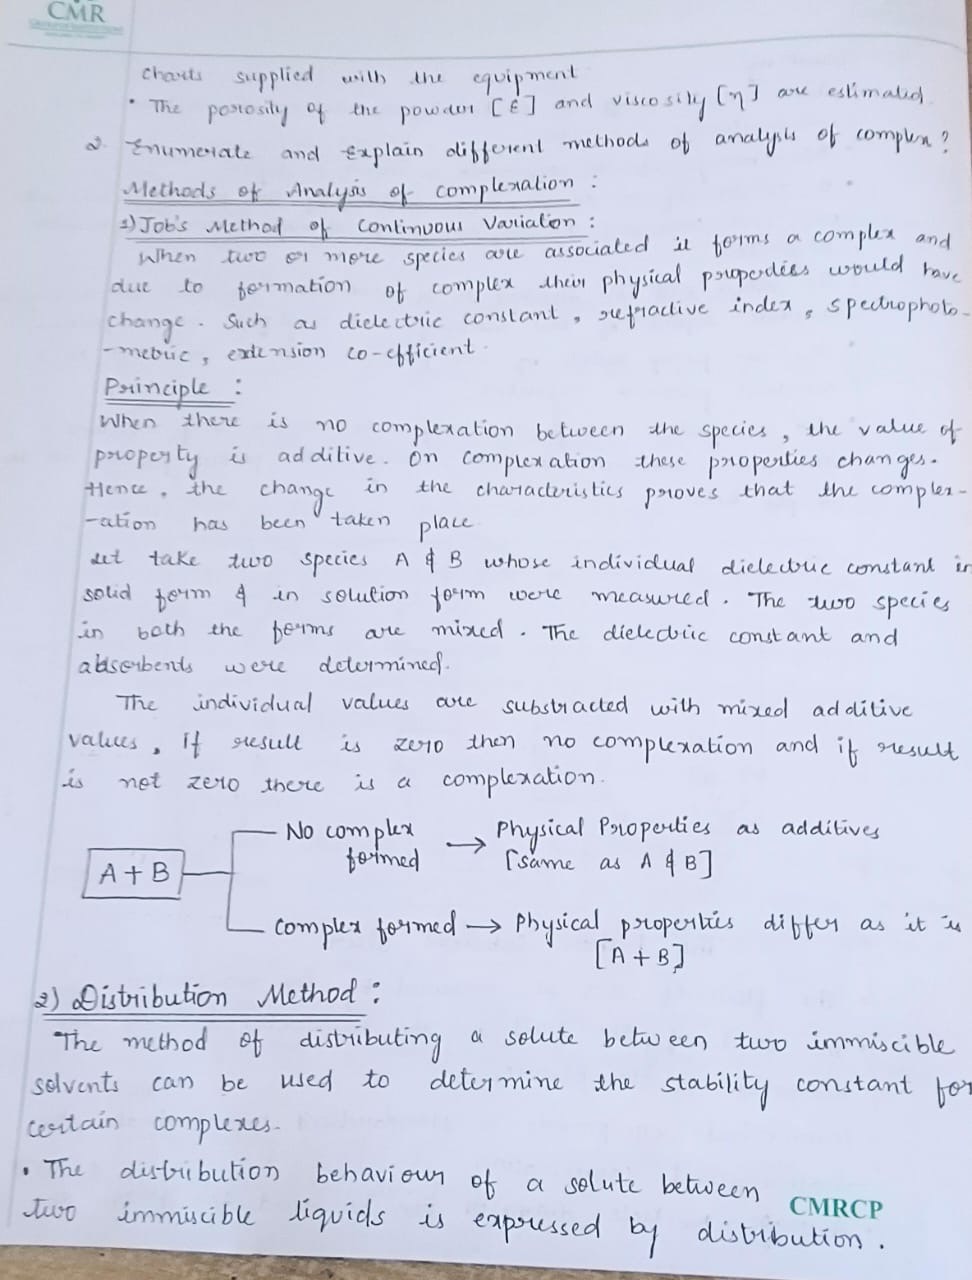 CMR
charts supplied with the equipment
• The porosity of the powder [ε] and viscosity [η] are estimated.
2. Enumerate and Explain different methods of analysis of complex?
Methods of Analysis of complexation :
1) Job's Method of Continuous Variation :
When two or more species are associated it forms a complex and
due to formation of complex their physical properties would have
change. Such as dielectric constant, refractive index, spectrophoto-
-metric, extension co-efficient.
Principle :
When there is no complexation between the species, the value of
property is additive. On complexation these properties changes.
Hence, the change in the characteristics proves that the complex-
-ation has been taken place
Let take two species A & B whose individual dielectric constant in
solid form & in solution form were measured. The two species
in both the forms are mixed. The dielectric constant and
absorbents were determined.
The individual values are substracted with mixed additive
values, If result is zero then no complexation and if result
is not zero there is a complexation.
No complex → Physical Properties as additives
formed [same as A & B]
A + B
complex formed → Physical properties differ as it is
[A + B]
2) Distribution Method :
The method of distributing a solute between two immiscible
solvents can be used to determine the stability constant for
certain complexes.
• The distribution behaviour of a solute between
two immiscible liquids is expressed by distribution.
CMRCP